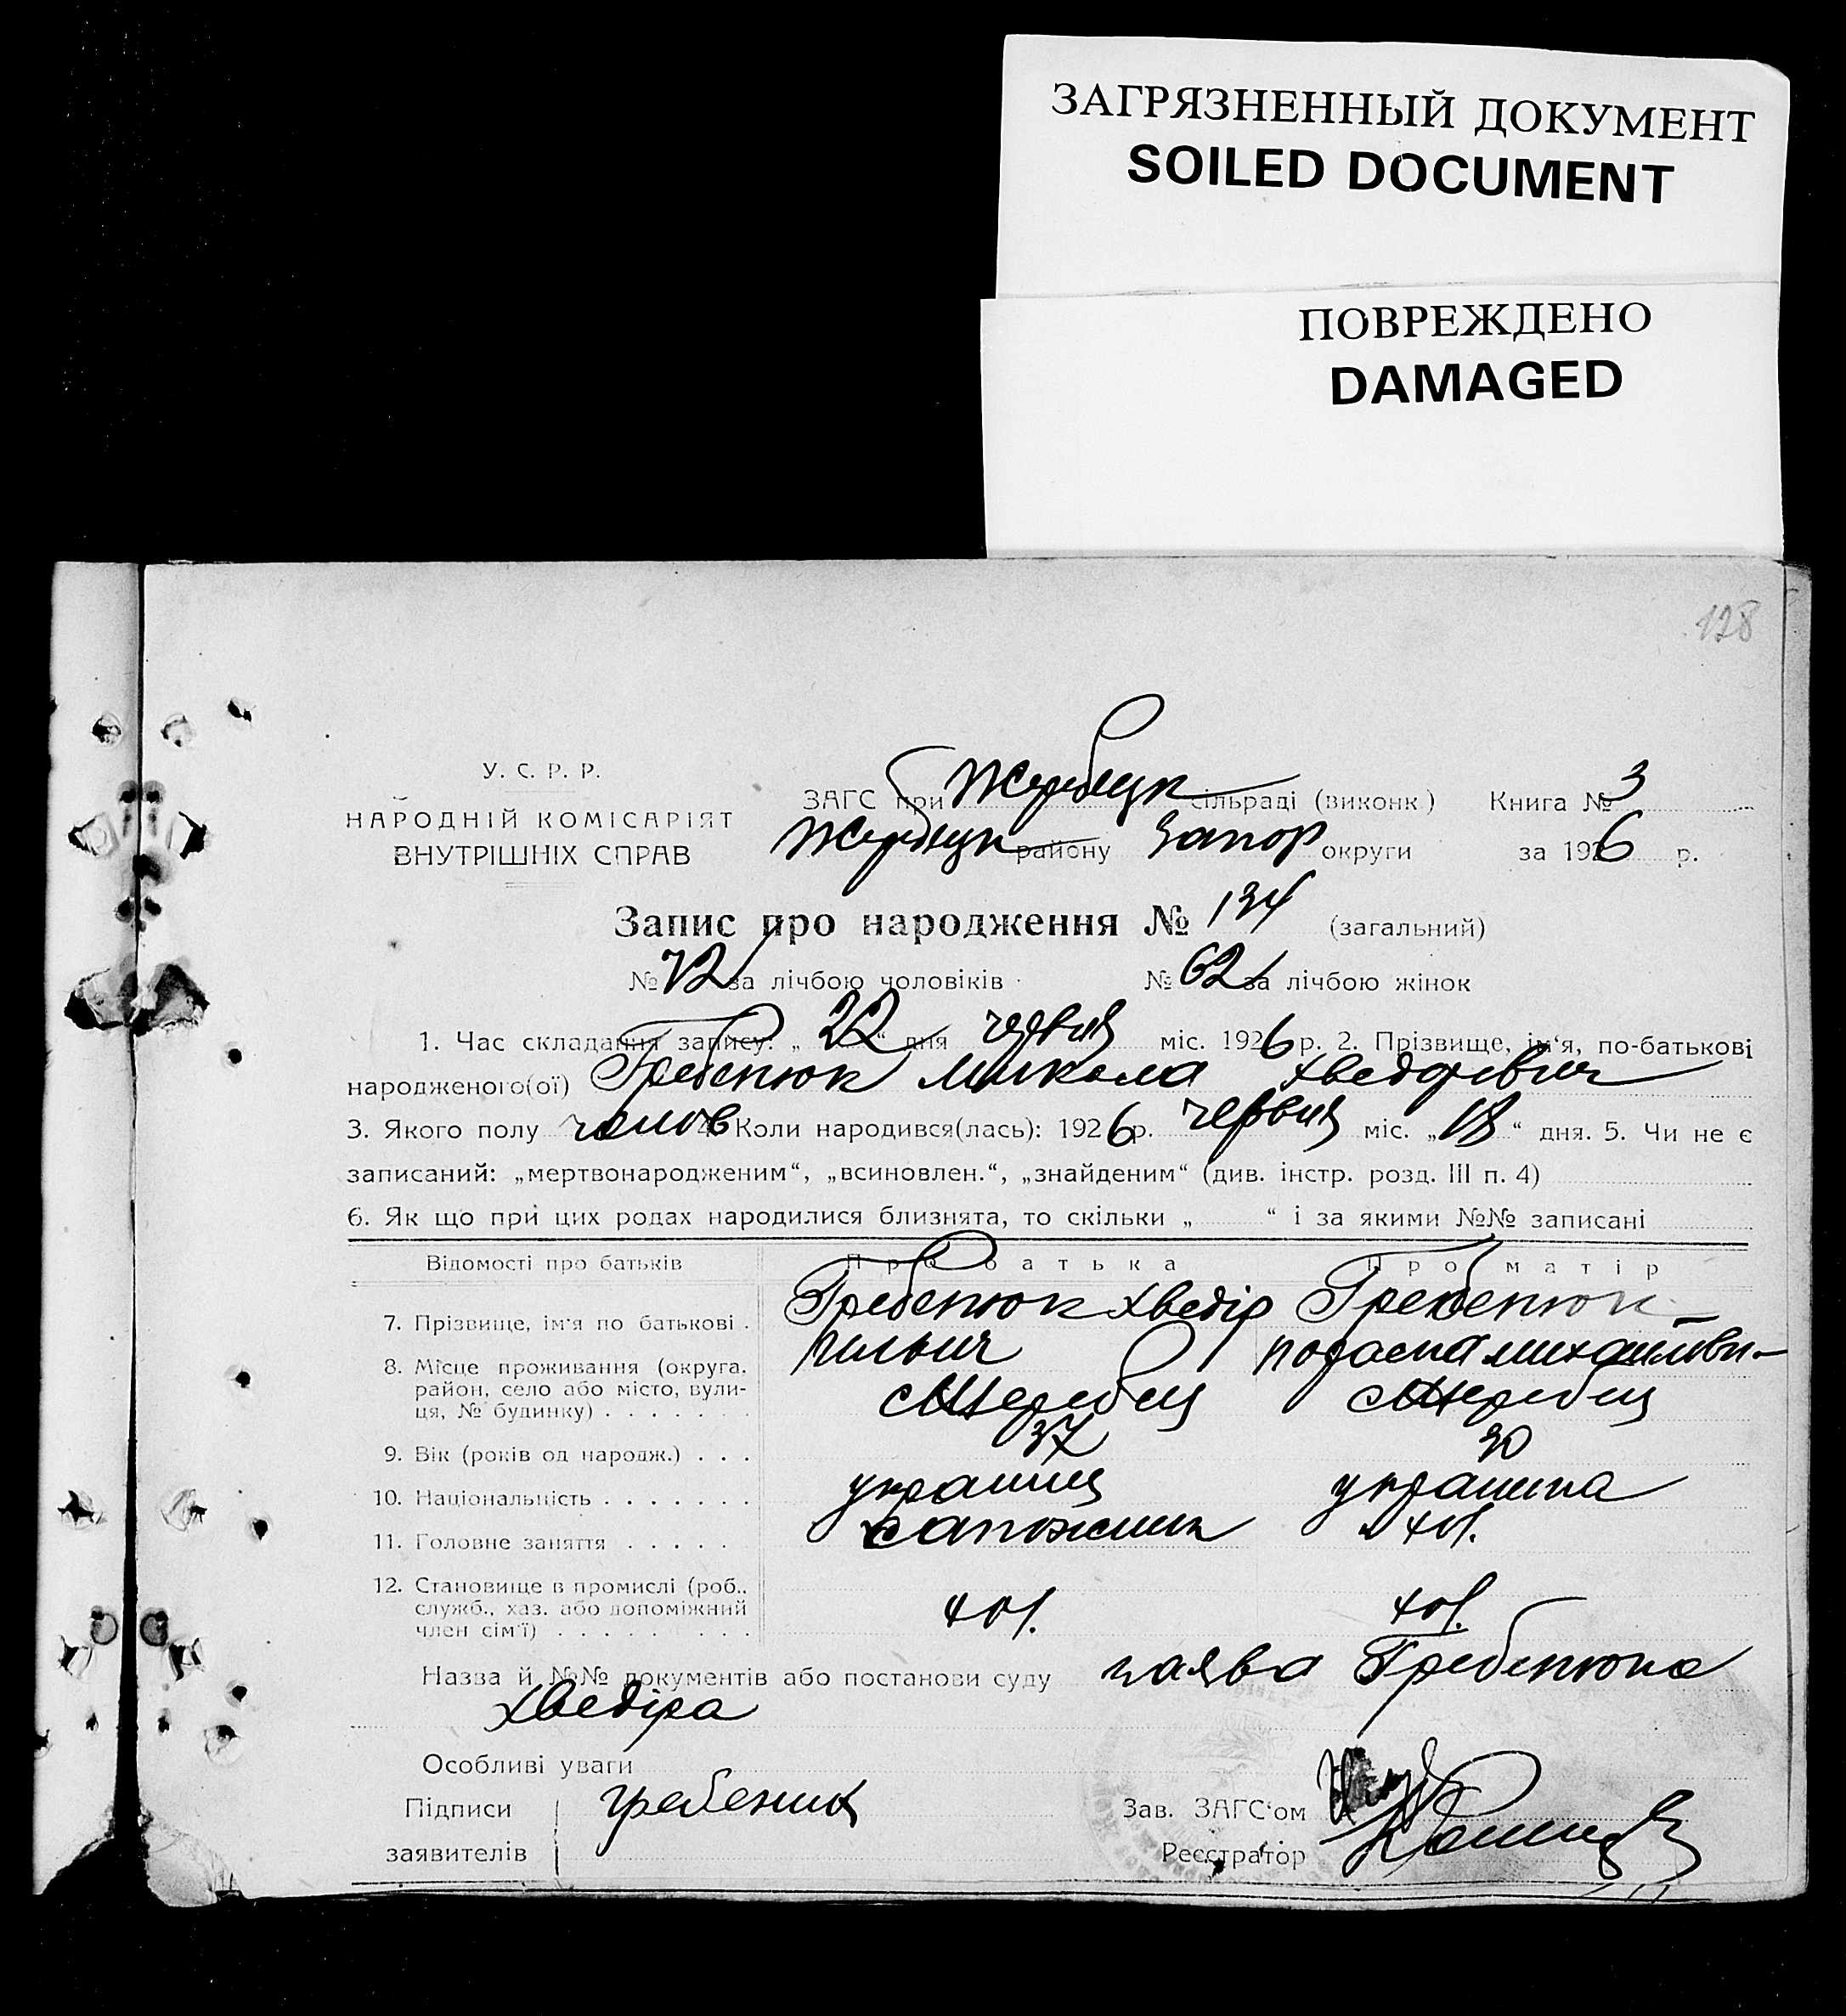 ЗАГРЯЗНЕННЫЙ ДОКУМЕНТ
SOILED DOCUMENT
ПОВРЕЖДЕНО
DAMAGED
128
У. С. Р. Р.
НАРОДНІЙ КОМІСАРІЯТ
ВНУТРІШНІХ СПРАВ
ЗАГС при Жеребецк сільраді (виконк) Книга № 3
Жеребецк району Запор округи за 1926 р.
Запис про народження № 134 (загальний)
№ 72 за лічбою чоловіків № 62 за лічбою жінок
1. Час складання запису: „ 22 “ дня червня міс. 1926 р. 2. Прізвище, ім‘я, по-батькові
народженого(ої) Гребенюк Микола Хведорович
3. Якого полу чолов 4. Коли народився(лась): 1926 р. червня міс. „ 18 “ дня. 5. Чи не є
записаний: „мертвонародженим“, „всиновлен.“, „знайденим“ (див. інстр. розд. III п. 4)
6. Як що при цих родах народилися близнята, то скільки „ “ і за якими №№ записані
Відомості про батьків Про батька Про матір
7. Прізвище, ім‘я по батькові . Гребенюк Хведір Гребенюк
Ильич михайлівн-
8. Місце проживання (округа, район, село або місто, вули- ця, № будинку) . . . . . . . с Жеребец с Жеребец
9. Вік (років од народж.) . . . 37 30
10. Національність . . . . . . . українец українка
11. Головне заняття . . . . . сапожник хоз.
12. Становище в промислі (роб., служб., хаз. або допоміжний член сім‘ї) . . . . . . . . . хоз. хоз.
Назва й №№ документів або постанови суду заява Гребенюка
Хведіра
Особливі уваги
Підписи
заявителів гребенюк
Зав. ЗАГС‘ом
Реєстратор